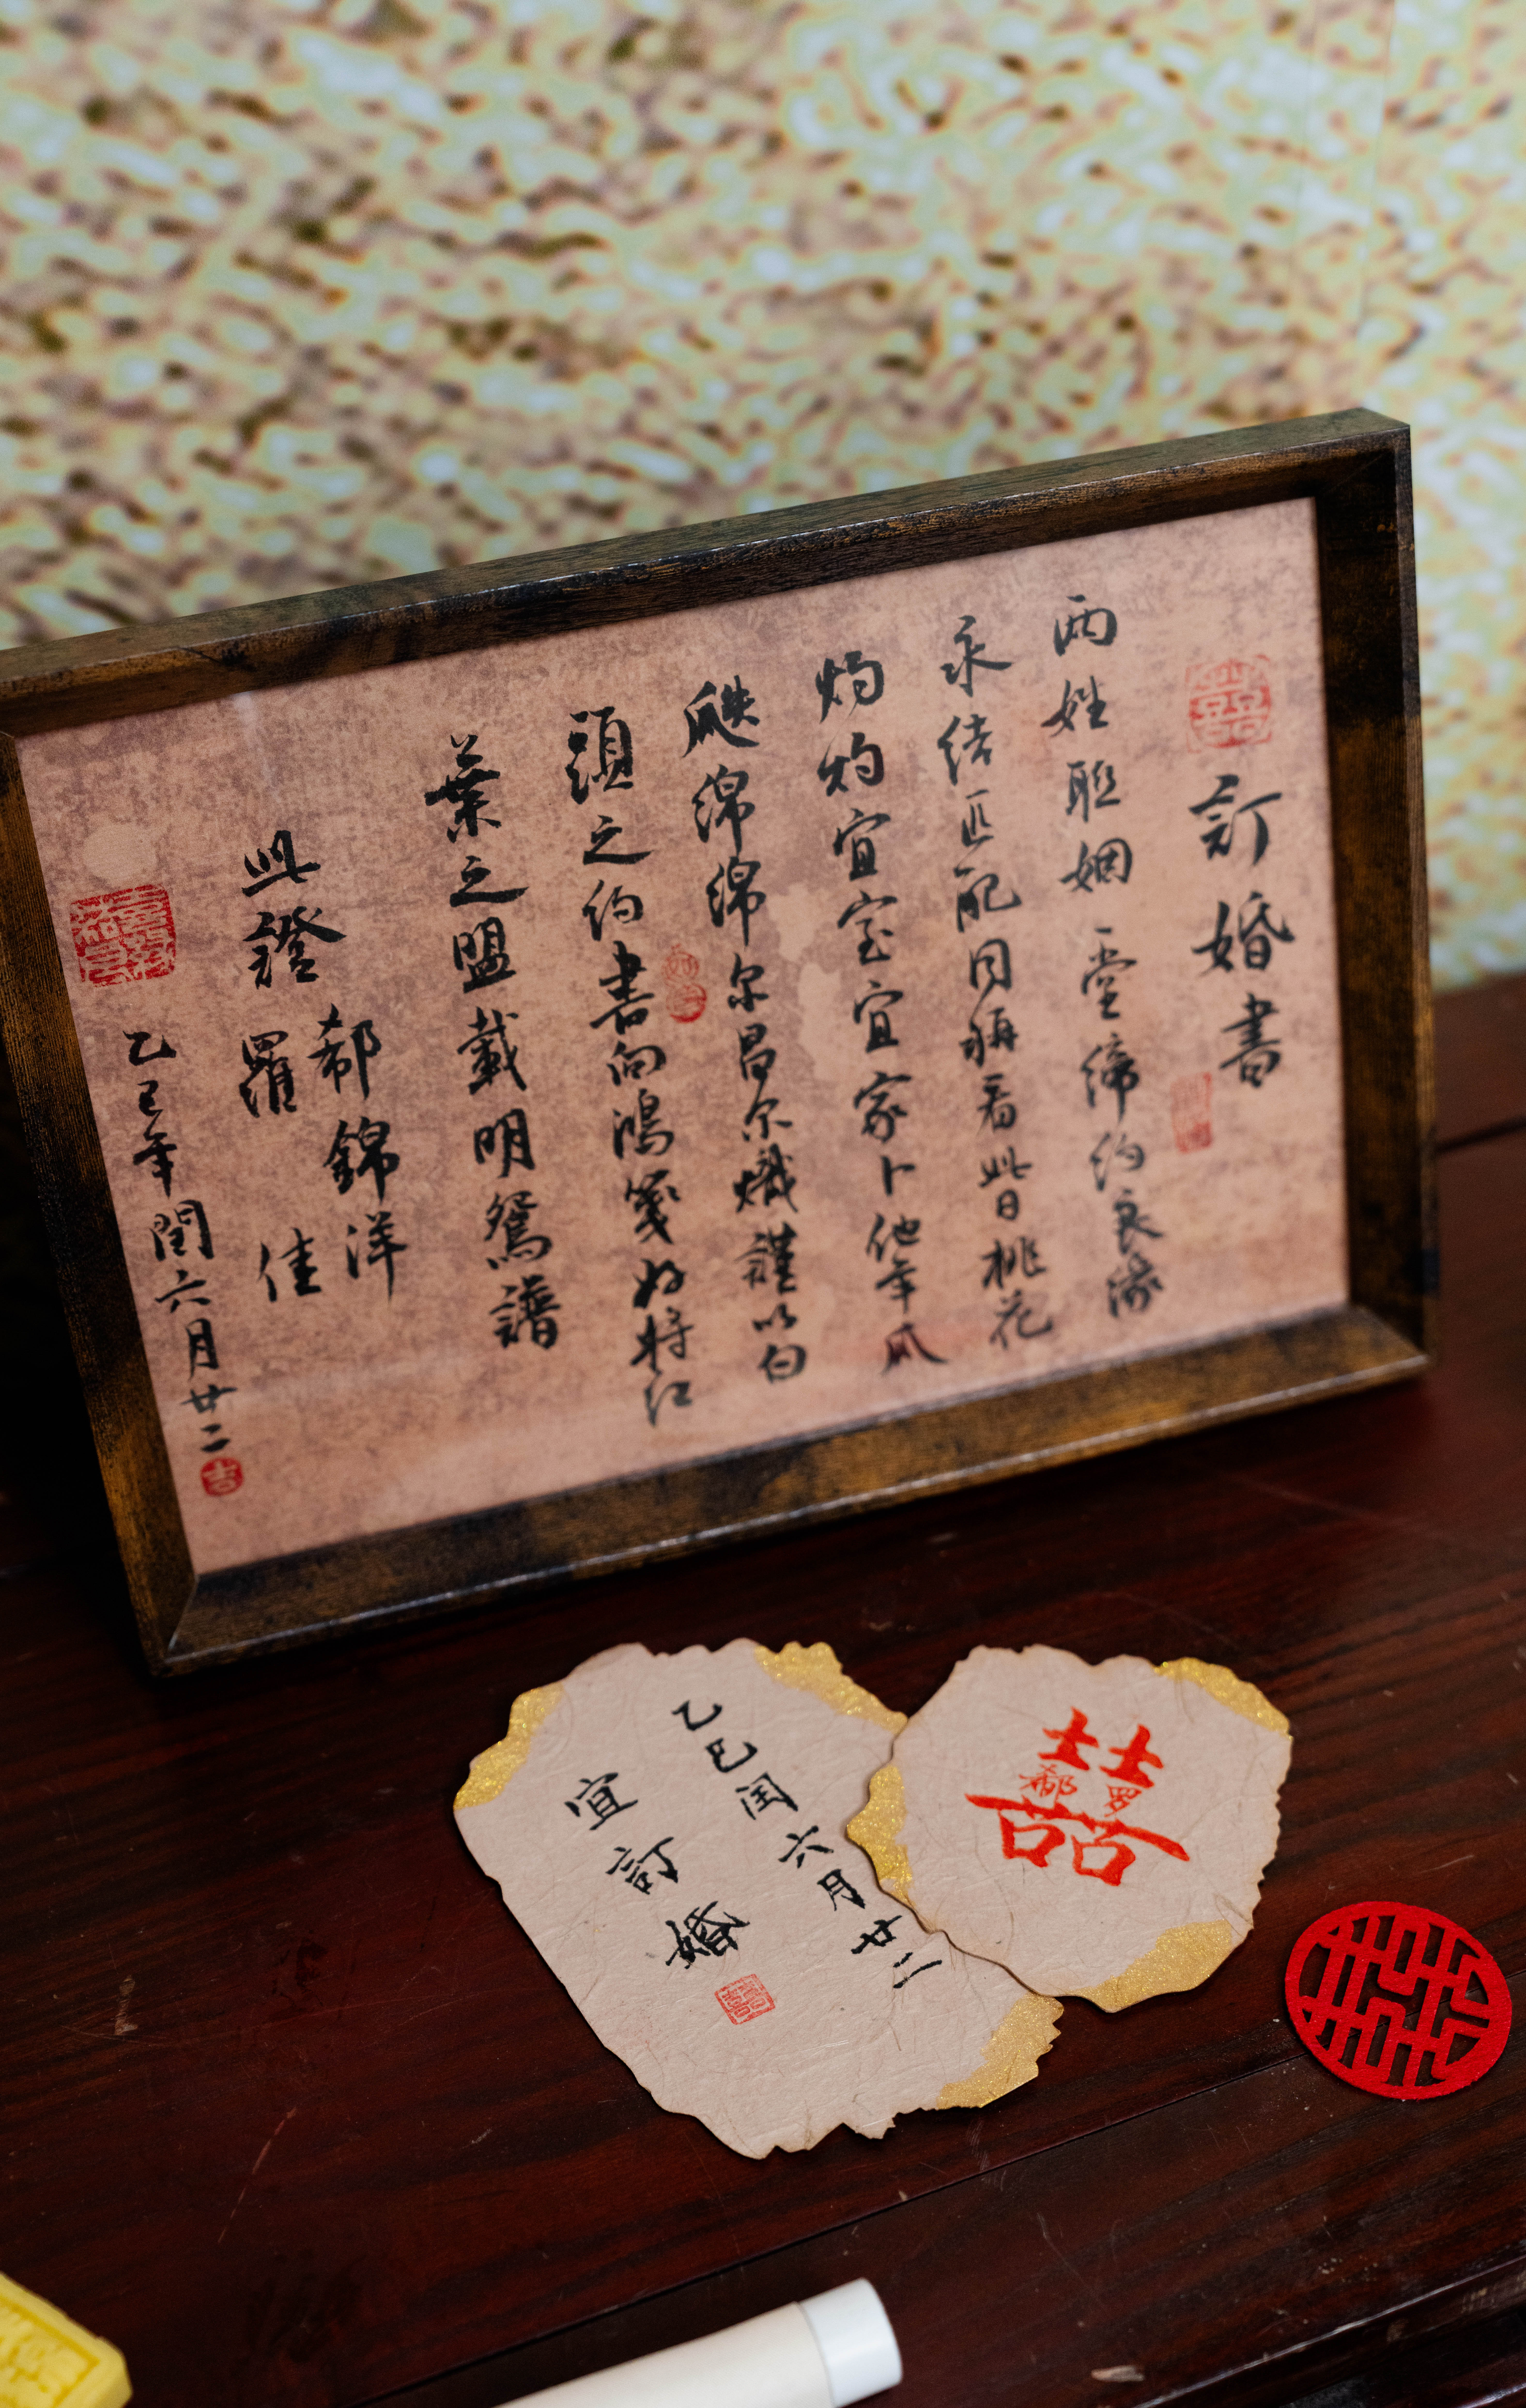 訂婚書
两姓联姻一堂締约良缘
永结匹配同稱看此日桃花
灼灼宜室宜家卜他年瓜
瓞綿綿尔昌尔熾謹以白
頭之约書向鴻箋好将红
葉之盟載明鴛譜
此證
郗錦洋
羅佳
乙巳年閏六月廿二
吉
乙巳闰六月廿二
宜訂婚
囍
郗罗
囍